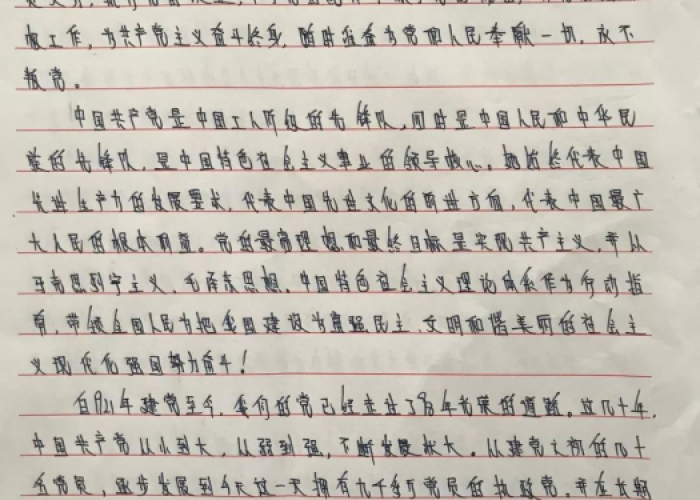 极工作，为共产党主义奋斗终身，随时准备为党和人民奉献一切，永不
叛党。
中国共产党是中国工人阶级的先锋队，同时是中国人民和中华民
族的先锋队，是中国特色社会主义事业的领导核心。她始终代表中国
先进生产力的发展要求，代表中国先进文化的前进方向，代表中国最广
大人民的根本利益。党的最高理想和最终目标是实现共产主义，并以
马克思列宁主义、毛泽东思想、中国特色社会主义理论体系作为行动指
南，带领全国人民为把我国建设为富强民主、文明和谐美丽的社会主
义现代化强国努力奋斗！
自1921年建党至今，我们的党已经走过了年光荣的道路。这几十年，
中国共产党从小到大、从弱到强、不断发展状大。从建党之初的几十
名党员，逐步发展到今天这一天拥有九千多万党员的执政党，并在长期